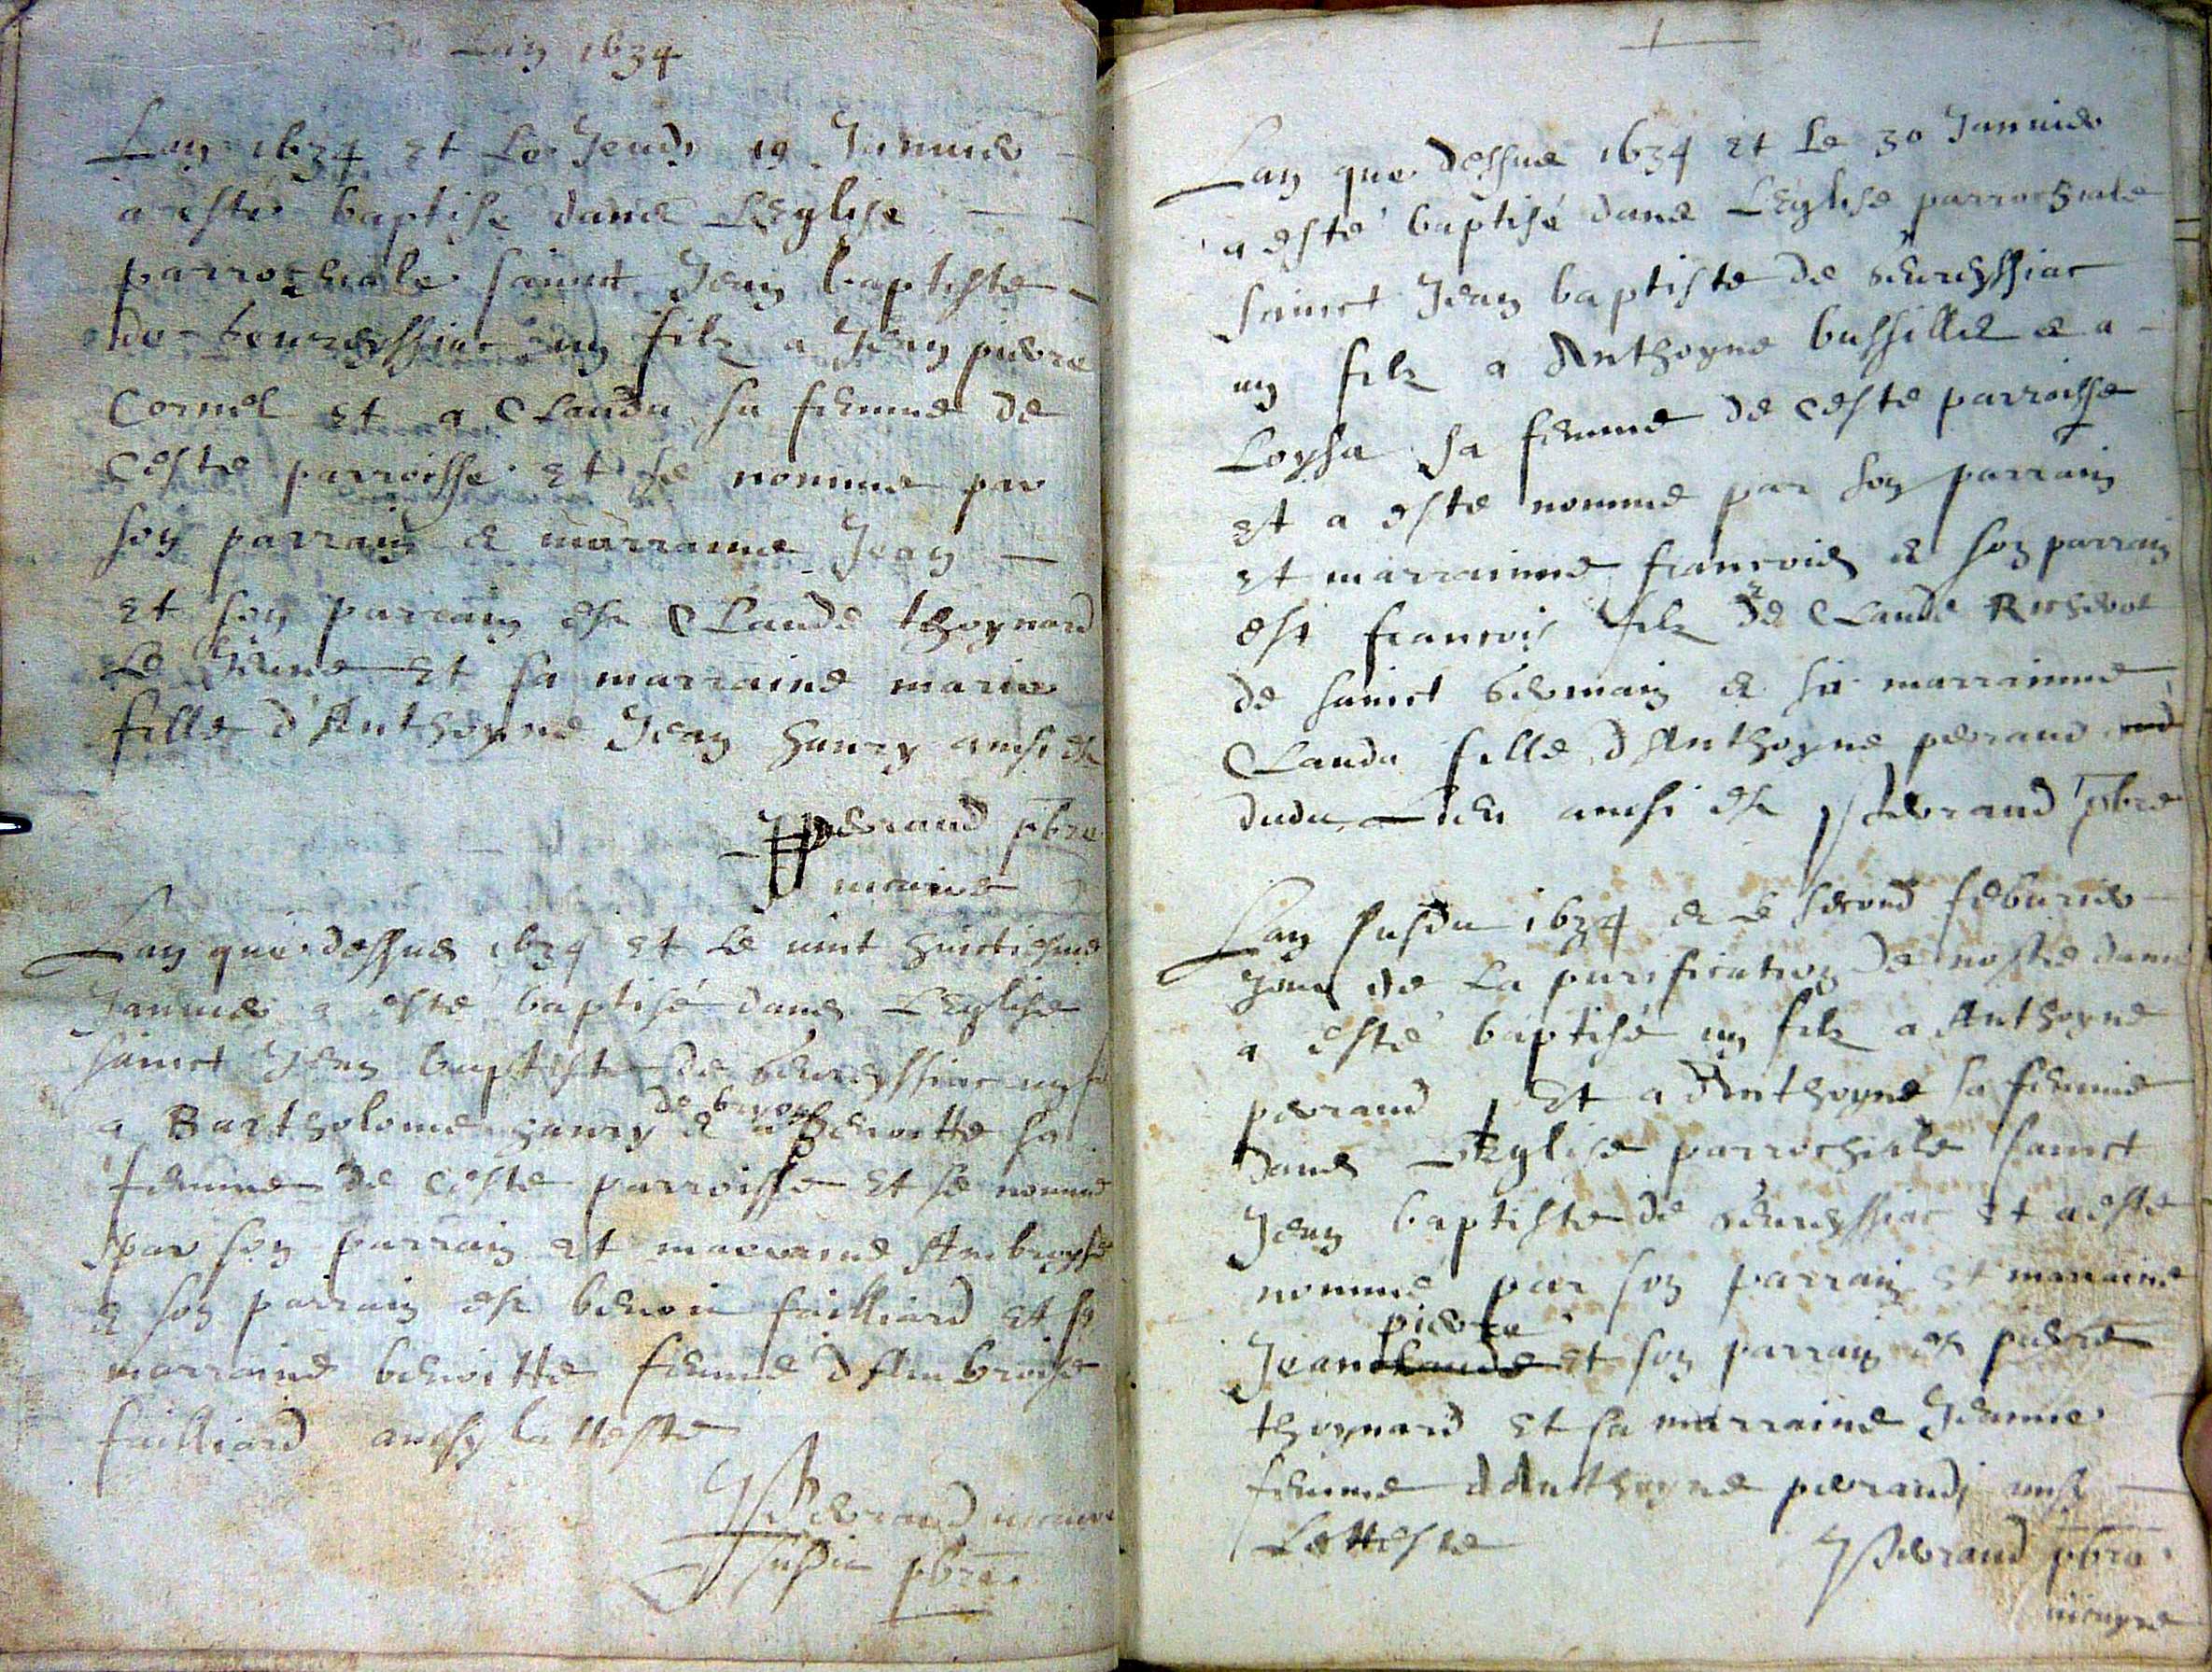 Lan 1634
Lan 1634 et le Jeudi 19 Januier
a este baptise dans LEglise
parrochiale sainct Jean baptiste
de seuressiac un filz a Jean pierre
Cornel et a Clauda sa femme de
Ceste parroisse et se nomme par
son parrain et marranne Jean
et son parrain est Claude thoynard
Le Jeune et sa marraine marie
fille d'Anthoyne Jean hanry ainsi est
perraud pbre
vicaire
Lan que dessus 1634 et le vint huictiesme
Januier a esté baptisé dans LEglise
sainct Jean baptiste de seuressiac un
de bryon
a Bartholome hanry et a benoitte sa
femme de ceste parroisse et se nomme
par son parrain et marrene Ambroyse
et son parrain est benoit failliard et sa
marraine benoitte femme d'Ambroise
failliard ainsy latteste
Perraud vicaire
susdit pbre
Lan que dessus 1634 et le 30 Januier
a esté baptisé dans LEglise parrochiale
sainct Jean baptiste de seuressiac
un filz a Anthoyne bussillet et a
Loysa sa femme de ceste parroisse
et a este nomme par son parrain
et marrainne francois et son parrain
est francois filz de Claude
de sainct Germain et sa marrainne
Clauda fille d'Anthoyne perraud
dudit lieu ainsi est perraud pbre
Lan susdit 1634 et le second feburier
Jour de La purification de nostre dame
a esté baptisé un filz a Anthoyne
perraud Et a Anthoyne sa femme
dans LEglise parrochiale sainct
Jean baptiste de seuressiac et a este
nomme par son parrain et marraine
pierre
Jean claude et son parrain est pierre
thoynard et sa marraine Jeanne
femme d'Anthoyne perraud ainsy
Latteste
Perraud pbre
vicayre